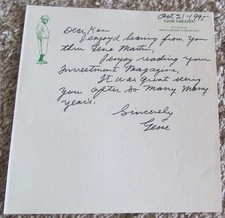 Oct 21-1985
GENE SARAZEN
Dear Ken
I enjoyed hearing from you
thru Gene Martin,
I enjoy reading your
Investment Magazine,
It was great seeing
you after so many many
years.
Sincerely
Gene